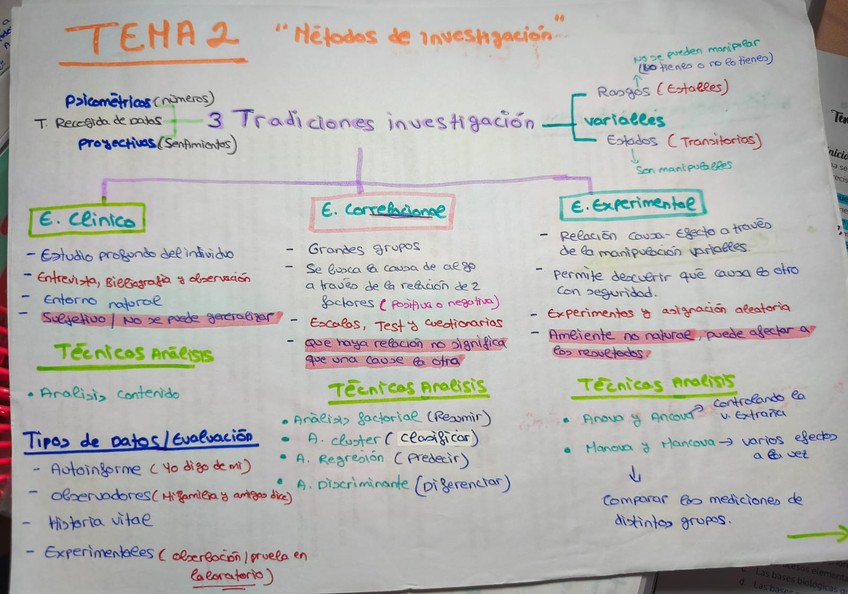 TEMA 2 "Métodos de investigación"
Psicométricos (números)
T. Recogida de datos
Proyectivas (Sentimientos)
3 Tradiciones investigación
No se pueden manipular
(Lo tienes o no lo tienes)
Rasgos (Estables)
variables
Estados (Transitorias)
Son manipulables
E. Clínico
- Estudio profundo del individuo
- Entrevista, Bibliografía y observación
- Entorno natural
- Subjetivo / No se puede generalizar
Técnicas Análisis
• Analisis contenido
Tipos de Datos/Evaluación
- Autoinforme (Yo digo de mi)
- Observadores (Mi familia y amigos dice)
- Historia vital
- Experimentales (observación/prueba en
laboratorio)
E. Correlacional
- Grandes grupos
- Se busca la causa de algo
a través de la relación de 2
factores (positiva o negativa)
- Escalas, Test y cuestionarios
- que haya relación no significa
que una cause la otra
Técnicas Analisis
• Análisis factorial (Resumir)
• A. cluster (Clasificar)
• A. Regresión (Predecir)
• A. Discriminante (Diferenciar)
E. Experimental
- Relación causa-Efecto a través
de la manipulación variables.
- Permite descubrir qué causa lo otro
con seguridad.
- Experimentos y asignación aleatoria
- Ambiente no natural, puede afectar a
los resultados.
Técnicas Analisis
• Anova y Ancova → controlando la
v. Extraña
• Manova y Mancova → varios efectos
a la vez
Comparar las mediciones de
distintos grupos.